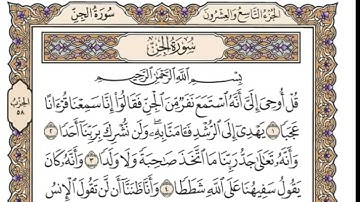 الجزء التاسع والعشرون
سورة الجن
سُورَةُ الجِنِّ
بِسْمِ اللَّهِ الرَّحْمَٰنِ الرَّحِيمِ
قُلْ أُوحِيَ إِلَيَّ أَنَّهُ ٱسْتَمَعَ نَفَرٌ مِّنَ ٱلْجِنِّ فَقَالُوٓا۟ إِنَّا سَمِعْنَا قُرْءَانًا
عَجَبًا ١ يَهْدِىٓ إِلَى ٱلرُّشْدِ فَـَٔامَنَّا بِهِۦ وَلَن نُّشْرِكَ بِرَبِّنَآ أَحَدًا ٢
وَأَنَّهُۥ تَعَٰلَىٰ جَدُّ رَبِّنَا مَا ٱتَّخَذَ صَٰحِبَةً وَلَا وَلَدًا ٣ وَأَنَّهُۥ كَانَ
يَقُولُ سَفِيهُنَا عَلَى ٱللَّهِ شَطَطًا ٤ وَأَنَّا ظَنَنَّآ أَن لَّن تَقُولَ ٱلْإِنسُ
الحزب
٥٨